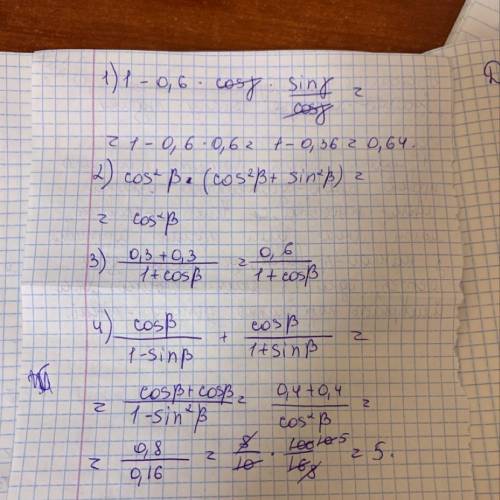 1) 1 - 0,6 · cosγ · sinγ/cosγ =
= 1 - 0,6 · 0,6 = 1 - 0,36 = 0,64.
2) cos²β · (cos²β + sin²β) =
= cos²β
3) (0,3 + 0,3)/(1 + cosβ) = 0,6/(1 + cosβ)
4) cosβ/(1 - sinβ) + cosβ/(1 + sinβ) =
= (cosβ + cosβ)/(1 - sin²β) = (0,4 + 0,4)/cos²β =
= 0,8/0,16 = 8/10 · 100 10 5/16 8 = 5.